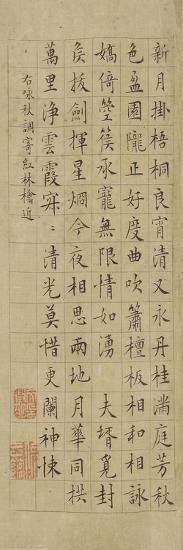 新月掛梧桐良宵清又永丹桂滿庭芳秋
色盈園隴正好度曲吹簫檀板相和相詠
嬌倚箜篌承寵無限情如湧　夫壻覓封
矦拔劍揮星爓今夜相思兩地月華同拱
萬里淨雲霞寐﹕清光莫惜更闌神悚
右咏秋調寄紅林檎近